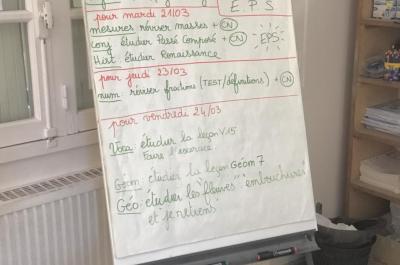 E P S
pour mardi 21/03
mesures réviser masses + CN
conj étudier Passé Composé + CN
EPS
Hist étudier Renaissance
pour jeudi 23/03
num réviser fractions (TEST/définitions) + CN
pour vendredi 24/03
Voca: étudier la leçon V15
Faire l'exercice
Géom: étudier la leçon Géom 7
Géo: étudier les "fleuves" embouchures
et je retiens